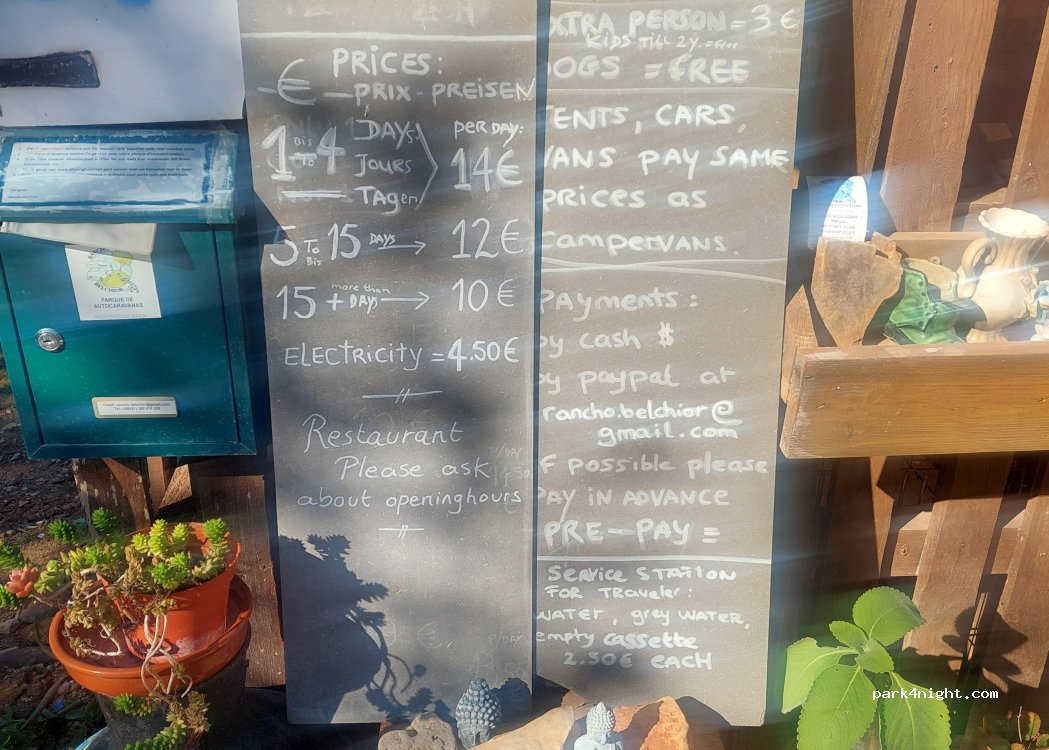 PRICES:
€ PRIX - PREISEN
1 Bis To 4 DAYS PER DAY:
Jours 14€
TAgen
5 To Bis 15 DAYS → 12€
15 + more than DAYS → 10€
ELECTRICITY = 4.50€
Restaurant
Please ask
about openinghours
P/DAY
XTRA PERSON = 3€
KIDS TILL 2Y. = Free
OGS = FREE
ENTS, CARS,
VANS PAY SAME
PRICES as
CAMPERVANS.
PAYMENTS:
by cash $
by paypal at
rancho.belchior@
gmail.com
F possible please
PAY IN ADVANCE
PRE-PAY =
SERVICE STATION
FOR TRAVELER:
WATER, grey WATER,
empty cassette
2.50€ EACH
RANCHO
BELCHIOR
PARQUE DE
AUTOCARAVANAS
Email: rancho.belchior@gmail.com
park4night.com